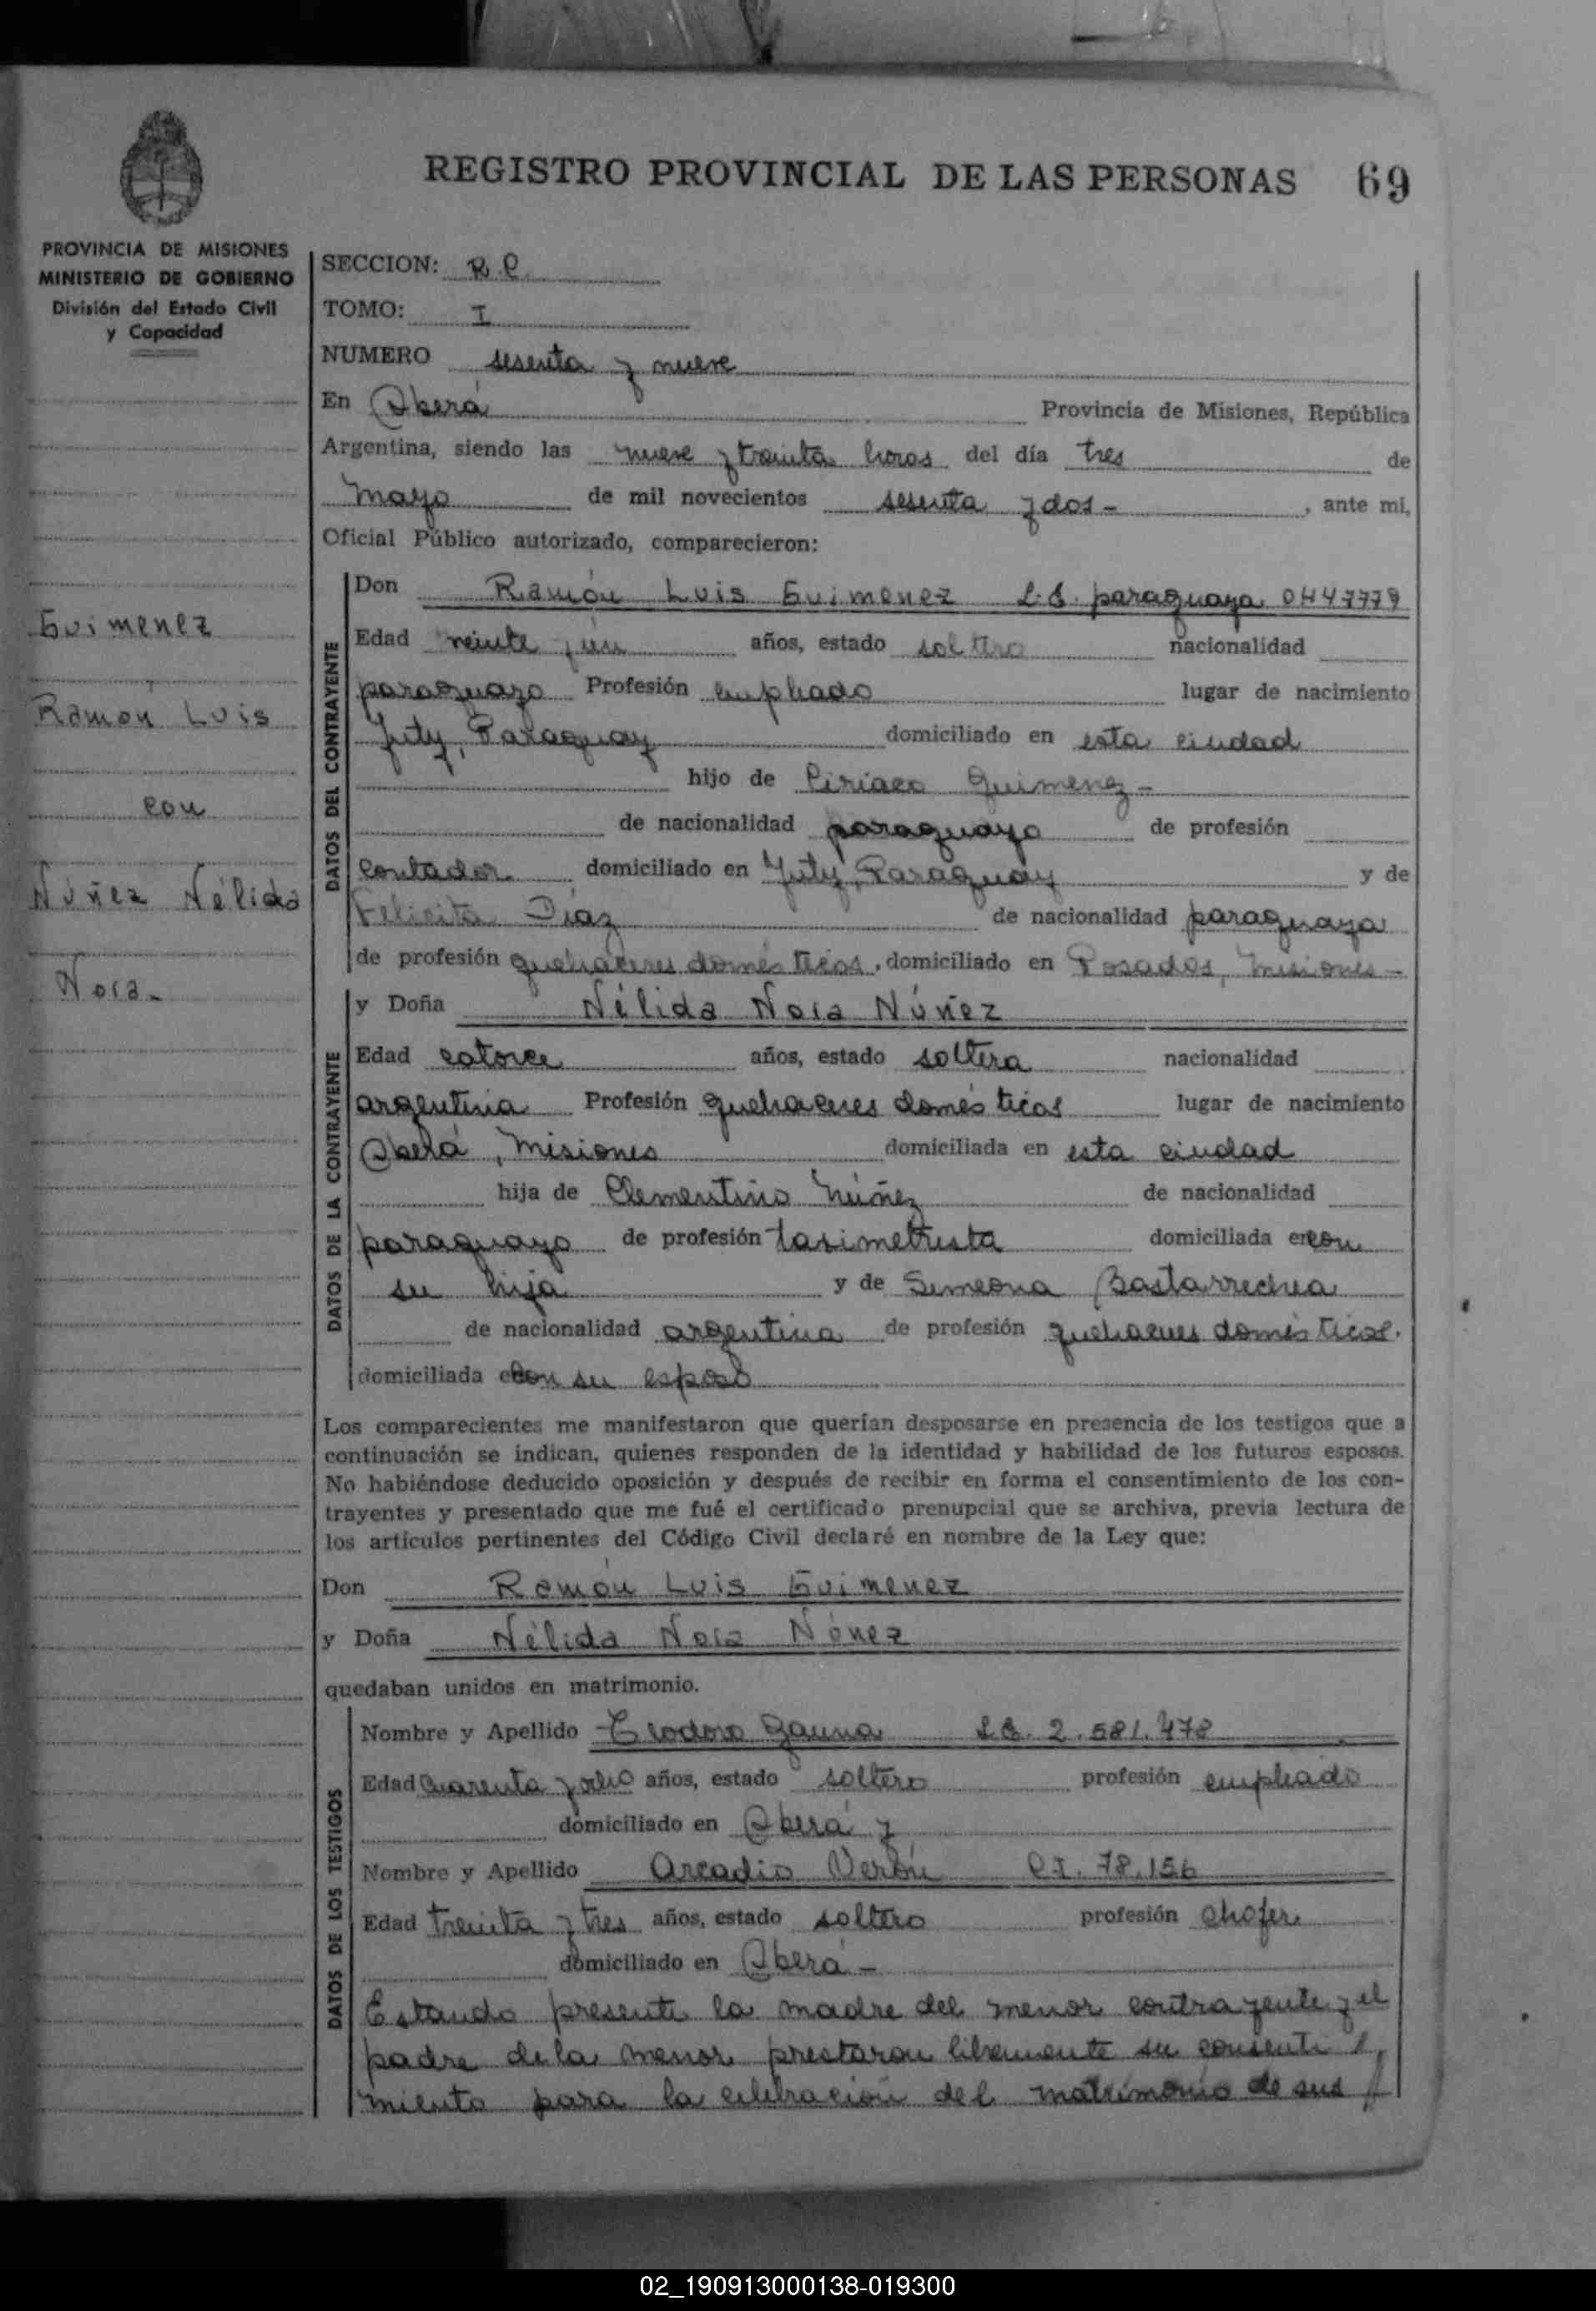 REGISTRO PROVINCIAL DE LAS PERSONAS 69
PROVINCIA DE MISIONES
MINISTERIO DE GOBIERNO
División del Estado Civil
y Capacidad
Guimenez
Ramón Luis
con
Núñez Nélida
Nora-
SECCION: R.P.
TOMO: I
NUMERO sesenta y nueve
En Oberá Provincia de Misiones, República
Argentina, siendo las nueve y treinta horas del día tres de
mayo de mil novecientos sesenta y dos- , ante mi,
Oficial Público autorizado, comparecieron:
DATOS DEL CONTRAYENTE
Don Ramón Luis Guimenez paraguaya
Edad veinte y un años, estado soltero nacionalidad
paraguayo Profesión empleado lugar de nacimiento
Yuty, Paraguay domiciliado en esta ciudad
hijo de Ciriaco Guimenez-
de nacionalidad paraguayo de profesión
contador domiciliado en Yuty, Paraguay y de
Felicita Díaz de nacionalidad paraguaya
de profesión quehaceres domésticos, domiciliado en Posadas, Misiones-
DATOS DE LA CONTRAYENTE
y Doña Nélida Nora Núñez
Edad catorce años, estado soltera nacionalidad
argentina Profesión quehaceres domésticos lugar de nacimiento
Oberá, Misiones domiciliada en esta ciudad
hija de Clementino Núñez de nacionalidad
paraguayo de profesión taximetrista domiciliada en con
su hija y de Simeona Bastarrechea
de nacionalidad argentina de profesión quehaceres domésticos.
domiciliada con su esposo
Los comparecientes me manifestaron que querían desposarse en presencia de los testigos que a
continuación se indican, quienes responden de la identidad y habilidad de los futuros esposos.
No habiéndose deducido oposición y después de recibir en forma el consentimiento de los con-
trayentes y presentado que me fué el certificado prenupcial que se archiva, previa lectura de
los artículos pertinentes del Código Civil declaré en nombre de la Ley que:
Don Ramón Luis Guimenez
y Doña Nélida Nora Núñez
quedaban unidos en matrimonio.
DATOS DE LOS TESTIGOS
Nombre y Apellido Teodoro Gauna L.E. 2.581.478
Edad cuarenta y ocho años, estado soltero profesión empleado
domiciliado en Oberá y
Nombre y Apellido Arcadio Verón C.I. 78.156
Edad treinta y tres años, estado soltero profesión chofer
domiciliado en Oberá-
Estando presente la madre del menor contrayente y el
padre de la menor prestaron libremente su consenti
miento para la celebración del matrimonio de sus
02_190913000138-019300